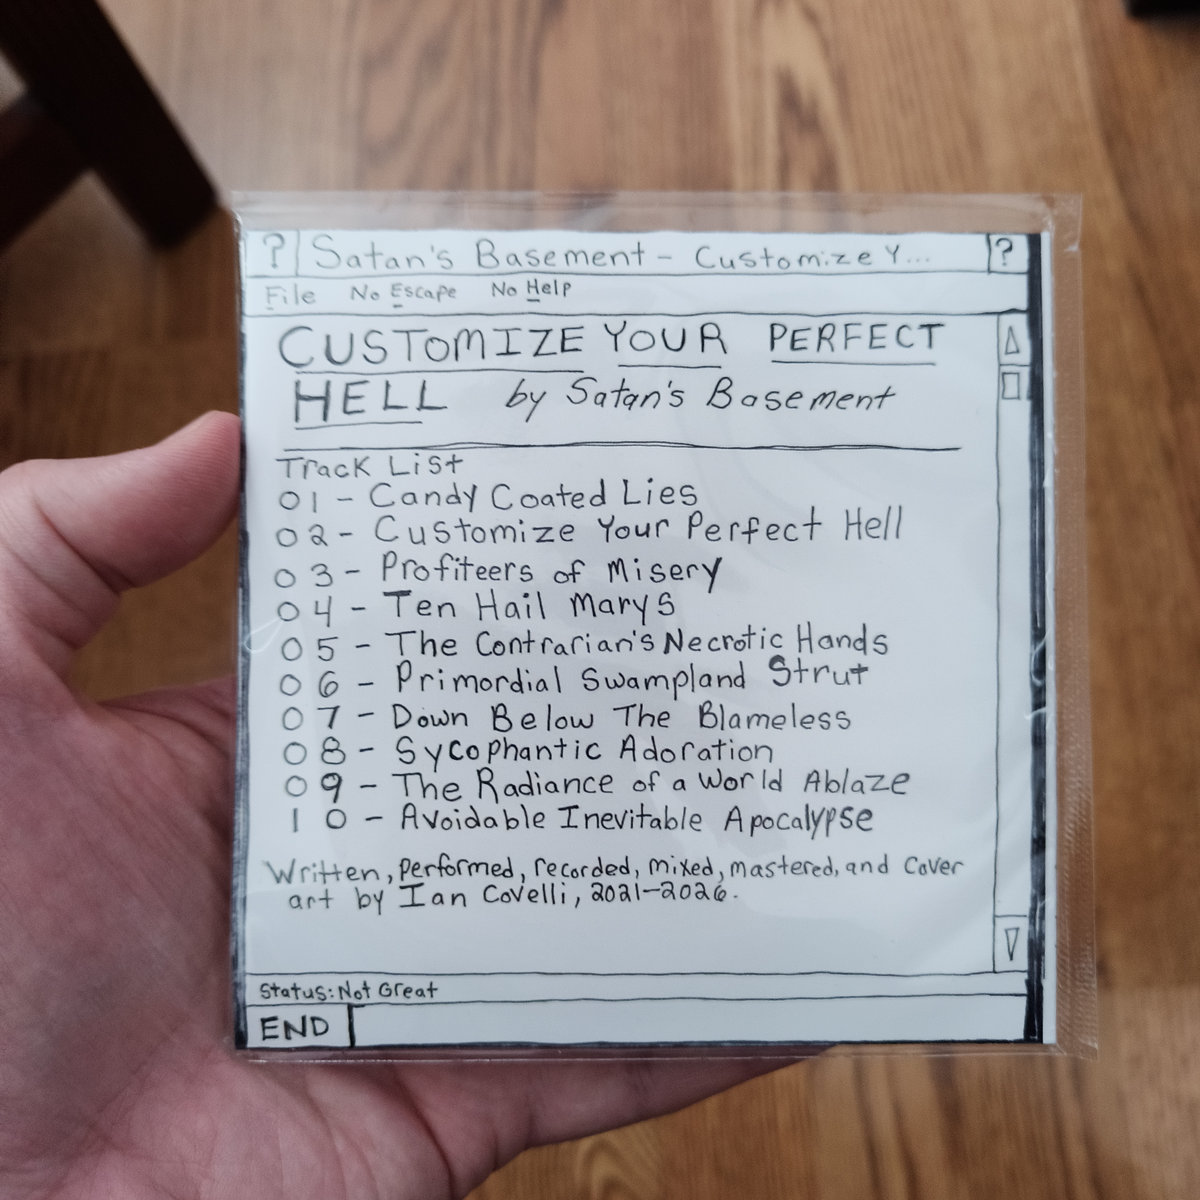 ? Satan's Basement - Customize Y... ?
File No Escape No Help
CUSTOMIZE YOUR PERFECT
HELL by Satan's Basement
Track List
01 - Candy Coated Lies
02 - Customize Your Perfect Hell
03 - Profiteers of Misery
04 - Ten Hail Marys
05 - The Contrarian's Necrotic Hands
06 - Primordial Swampland Strut
07 - Down Below The Blameless
08 - Sycophantic Adoration
09 - The Radiance of a World Ablaze
10 - Avoidable Inevitable Apocalypse
Written, performed, recorded, mixed, mastered, and cover
art by Ian Covelli, 2021-2026.
Status: Not Great
END